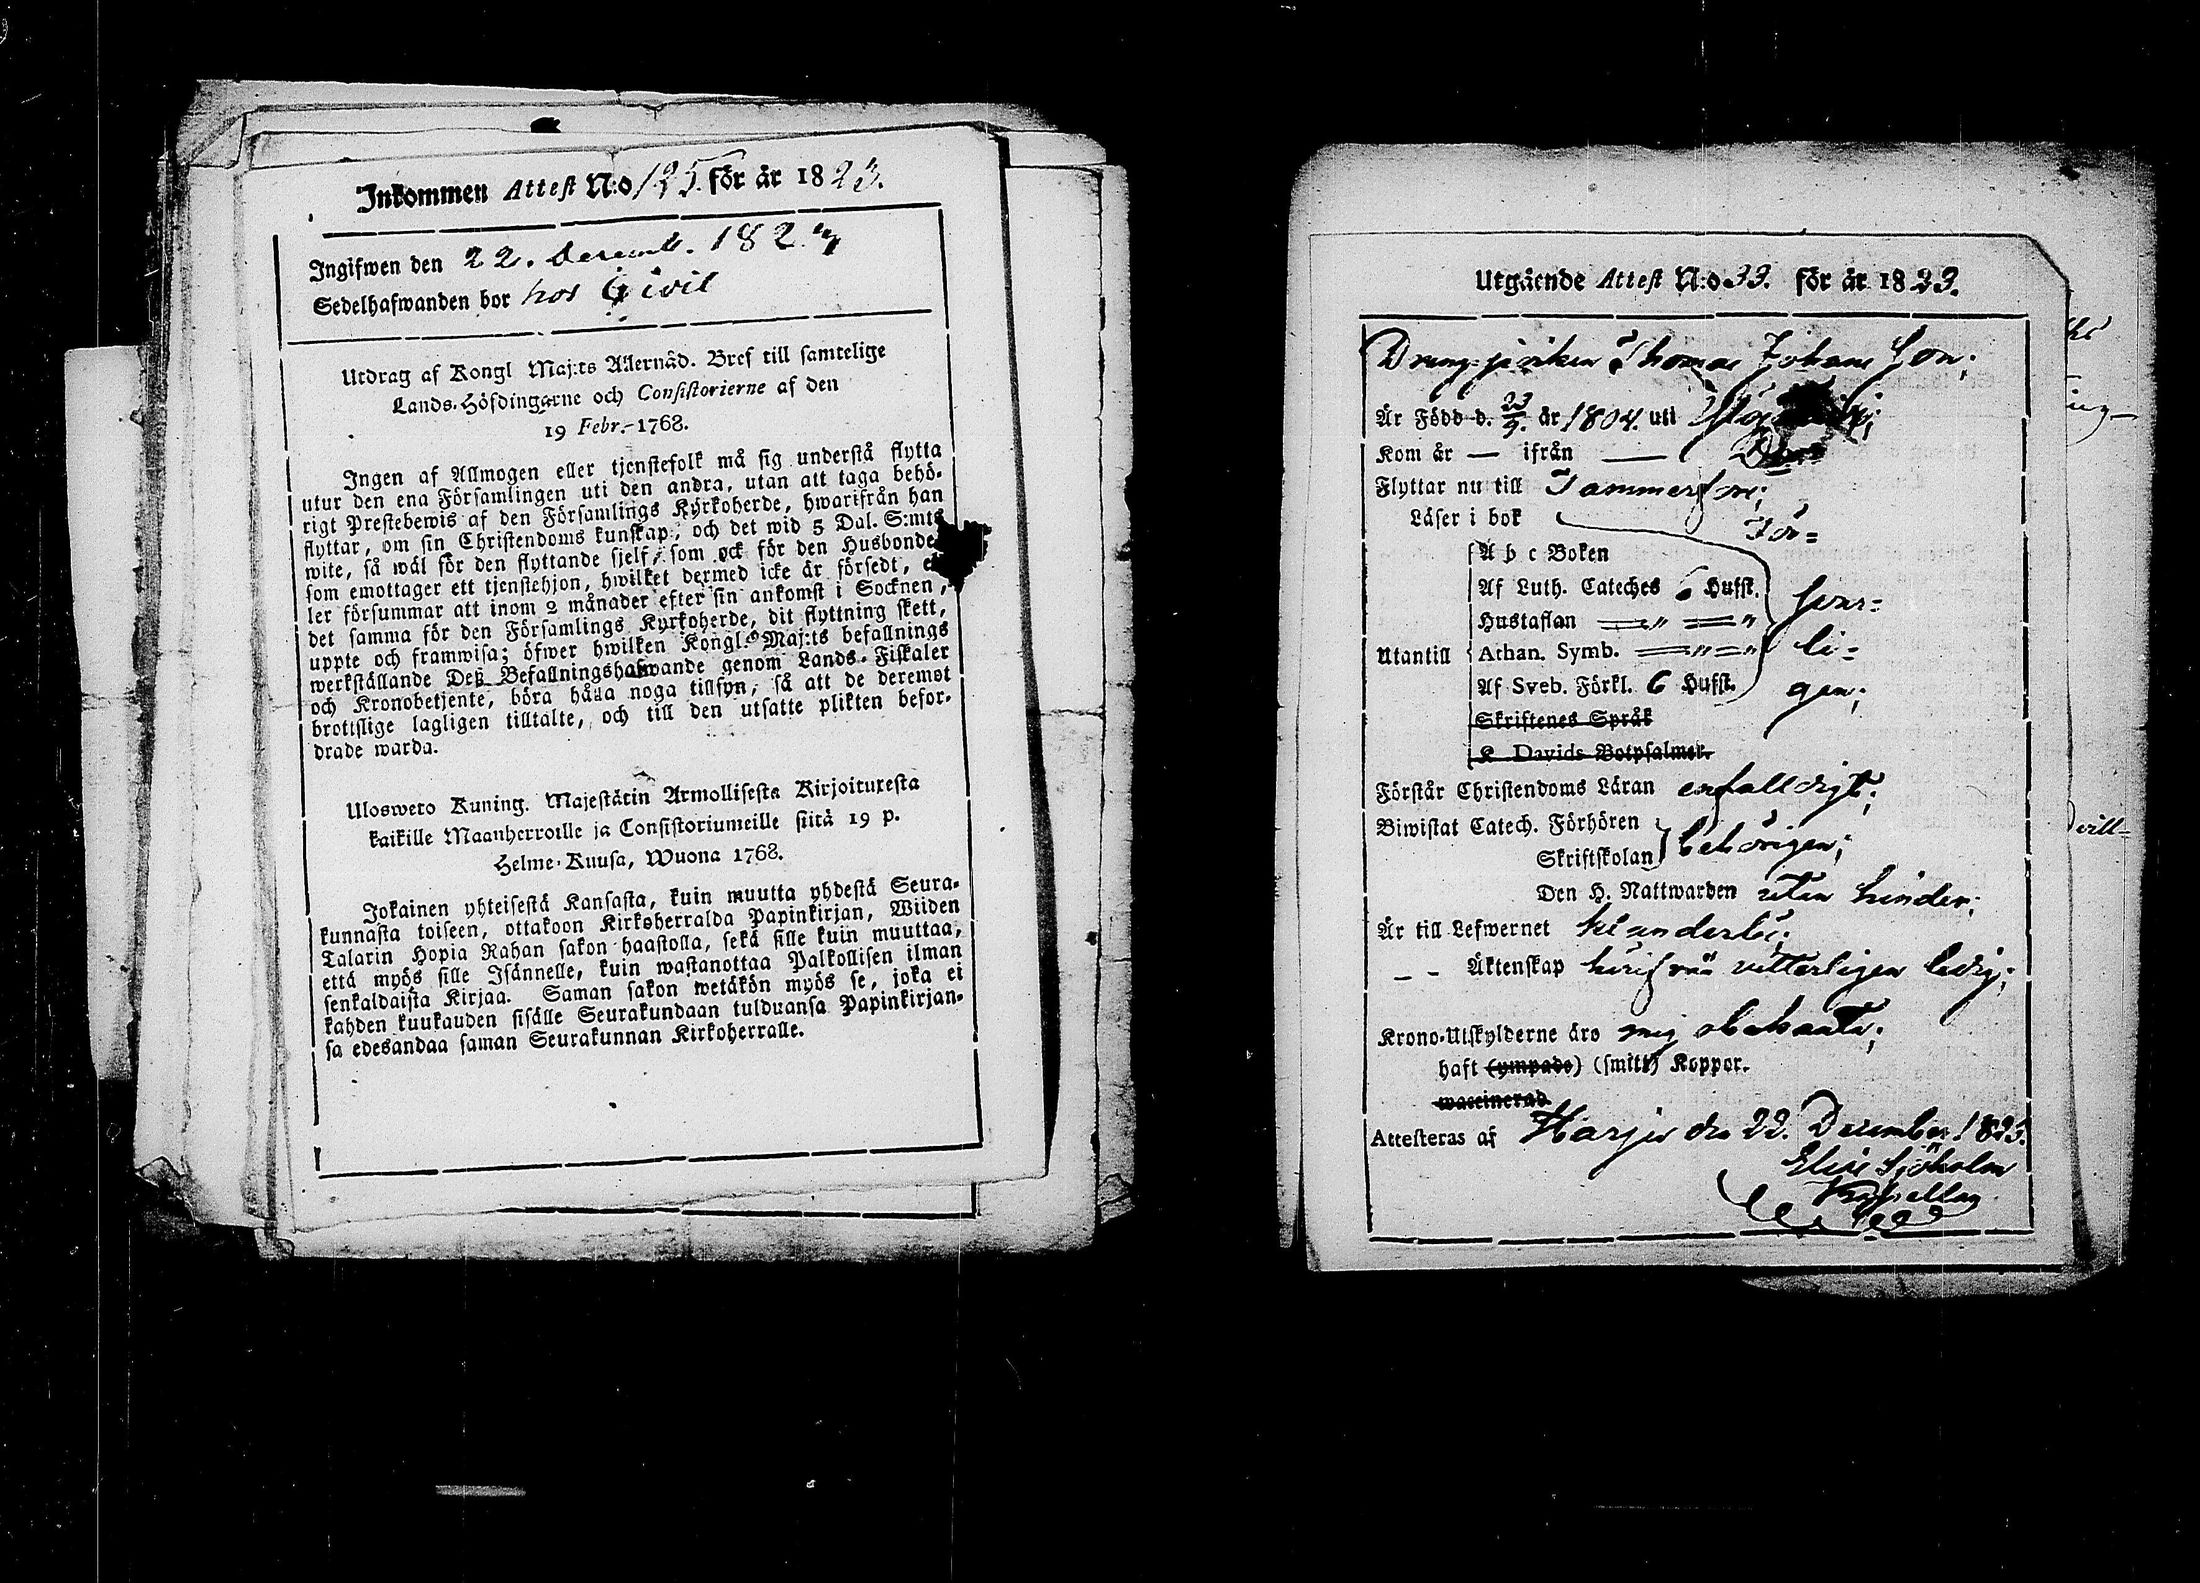 Inkommen Attest N:o 125. för år 1823.
Ingifwen den 22. Decemb. 1823
Sedelhafwanden bor hos Givil
Utdrag af Kongl Maj:ts Allernåd. Bref till samtelige
Lands-Höfdingarne och Consistorierne af den
19 Febr. 1768.
Ingen af Allmogen eller tjenstefolk må sig understå flytta
utur den ena Församlingen uti den andra, utan att taga behö-
rigt Prestebewis af den Församlings Kyrkoherde, hwarifrån han
flyttar, om sin Christendoms kunskap, och det wid 5 Dal. S:mts
wite, så wäl för den flyttande sjelf, som ock för den Husbonde
som emottager ett tjenstehjon, hwilket dermed icke är försedt, el
ler försummar att inom 2 månader efter sin ankomst i Socknen,
det samma för den Församlings Kyrkoherde, dit flyttning skett,
uppte och framwisa; öfwer hwilken Kongl. Maj:ts befallnings
werkställande Deß Befallningshafwande genom Lands-Fiskaler
och Kronobetjente, böra hålla noga tillsyn, så att de deremot
brottslige lagligen tilltalte, och till den utsatte plikten befor-
drade warda.
Ulosweto Kuning. Majestätin Armollisesta Kirjoituxesta
kaikille Maanherroille ja Consistoriumeille siitä 19 p.
Helme-Kuusa, Wuona 1768.
Jokainen yhteisestä Kansasta, kuin muutta yhdestä Seura-
kunnasta toiseen, ottakoon Kirkoherralda Papinkirjan, Wiiden
Talarin Hopia Rahan sakon haastolla, sekä sille kuin muuttaa,
että myös sille Isännelle, kuin wastanottaa Palkollisen ilman
senkaldaista Kirjaa. Saman sakon wetäkön myös se, joka ei
kahden kuukauden sisälle Seurakundaan tulduansa Papinkirjan-
sa edesandaa saman Seurakunnan Kirkoherralle.
Utgående Attest N:o 33. för år 1823.
Dreng-pojken Thomas Johans Son;
Är Född d. 23/9. år 1804. uti
Kom år — ifrån —
Flyttar nu till Tammerfors;
Läser i bok för=
A b c Boken
Af Luth. Cateches 6 Hufst. svar=
Hustaflan —„ —„
Utantill Athan. Symb. —„—„ li=
Af Sveb. Förkl. 6 Hufst. gen;
Skriftenes Språk
K Davids Botpsalmer.
Förstår Christendoms Läran enfalldigt;
Biwistat Catech. Förhören
Skriftskolan behörigen;
Den H. Nattwarden utan hinder;
Är till Lefwernet
– – Äktenskap härifrån vitterligen ledig;
Krono-Utskylderne äro mig obekanta;
haft (ympade) (smitt) Koppor.
waccinerad.
Attesteras af Harju den 22. December 1823.
Elias Sjöholm
Kapellan